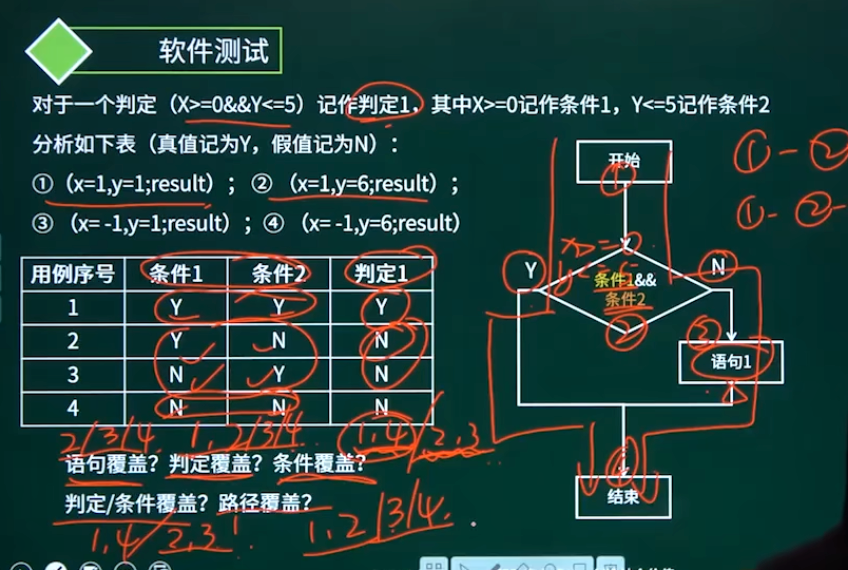 软件测试
对于一个判定（X>=0&&Y<=5）记作判定1，其中X>=0记作条件1，Y<=5记作条件2
分析如下表（真值记为Y，假值记为N）：
①（x=1,y=1;result）；②（x=1,y=6;result）；
③（x= -1,y=1;result）；④（x= -1,y=6;result）
用例序号 条件1 条件2 判定1
1 Y Y Y
2 Y N N
3 N Y N
4 N N N
2/3/4 1,2/3/4 1,4/2,3
语句覆盖？判定覆盖？条件覆盖？
判定/条件覆盖？路径覆盖？
1,4 2,3 1,2/3/4.
①-②
①-②-
开始
①
x>=0
Y N
条件1&&
条件2
②
③
语句1
结束